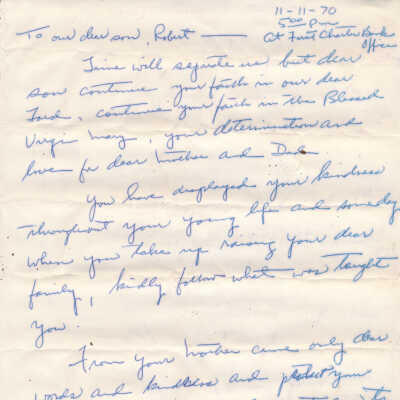 11-11-70
5:00 P.M.
At First Charter Bank
Office
To our dear son, Robert —
Time will separate us but dear
son continue your faith in our dear
Lord, continue your faith in the Blessed
Virgin Mary, your determination and
love for dear Mother and Dad.
You have displayed your kindness
throughout your young life and someday
when you take up raising your dear
family, kindly follow what was taught
you.
From your Mother came only dear
words and kindness and protect your